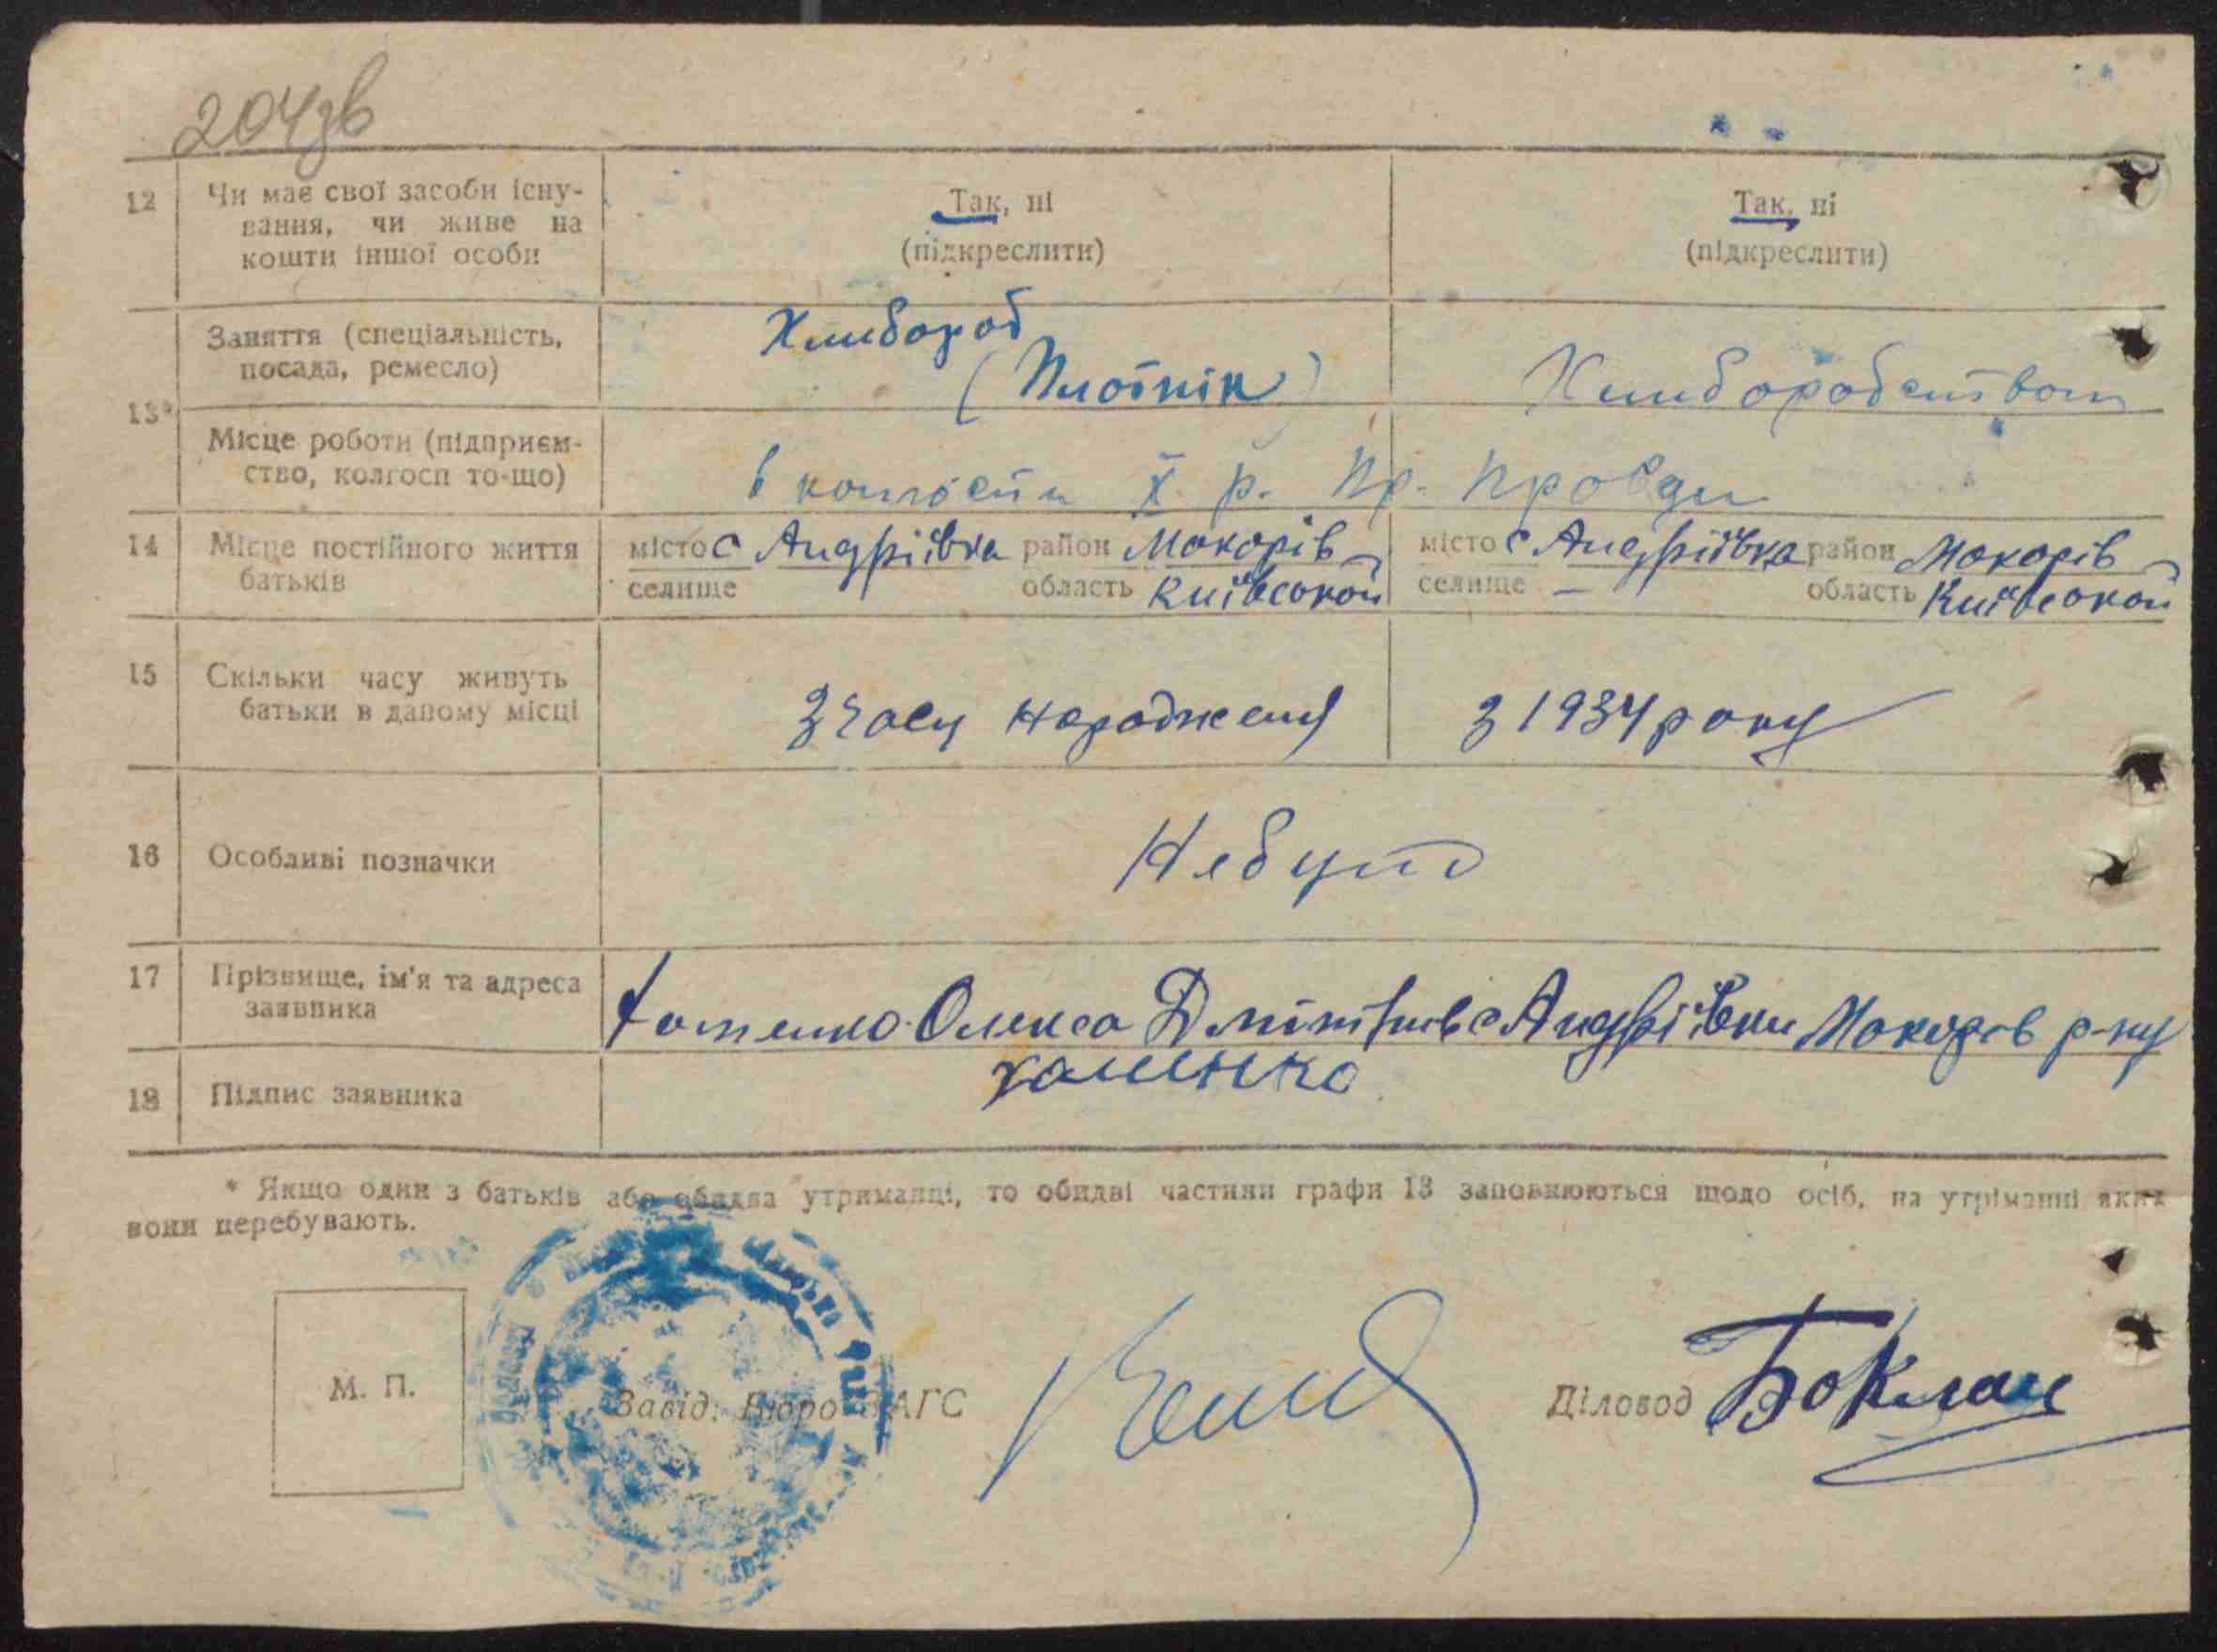 204зв
12 Чи має свої засоби існу- Так, ні Так, ні
вання, чи живе на (підкреслити) (підкреслити)
кошти іншої особи
Заняття (спеціальність, Хлибороб
посада, ремесло) (Плотнік) Хлиборобством
13*
Місце роботи (підприєм-
ство, колгосп то-що) в колгоспи Х р. Пр. Провди
14 Місце постійного життя місто с Андріївка район Мокорів місто с Андріївка район Мокорів
батьків селище область Київської селище — область Київської
15 Скільки часу живуть
батьки в даному місці З часу народженя з 1934 року
16 Особливі позначки Небуло
17 Прізвище, ім'я та адреса
заявника Хоменко Олекса Дмітрів с Андріївки Мокорів р-ну
18 Підпис заявника хоменко
* Якщо один з батьків або обидва утриманці, то обидві частини графи 13 заповнюються щодо осіб, на утріманні яких
вони перебувають.
М. П. Завід. Бюро ЗАГС Діловод Боклан